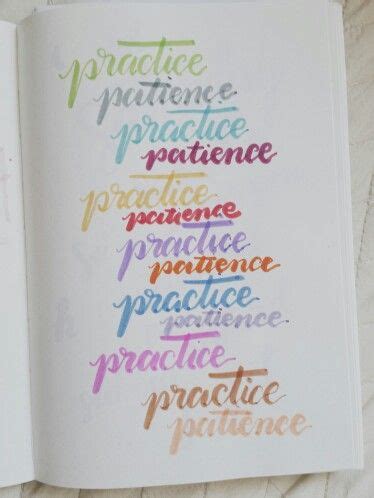 practice
patience
practice
patience
practice
patience
practice
patience
practice
patience
practice
practice
patience